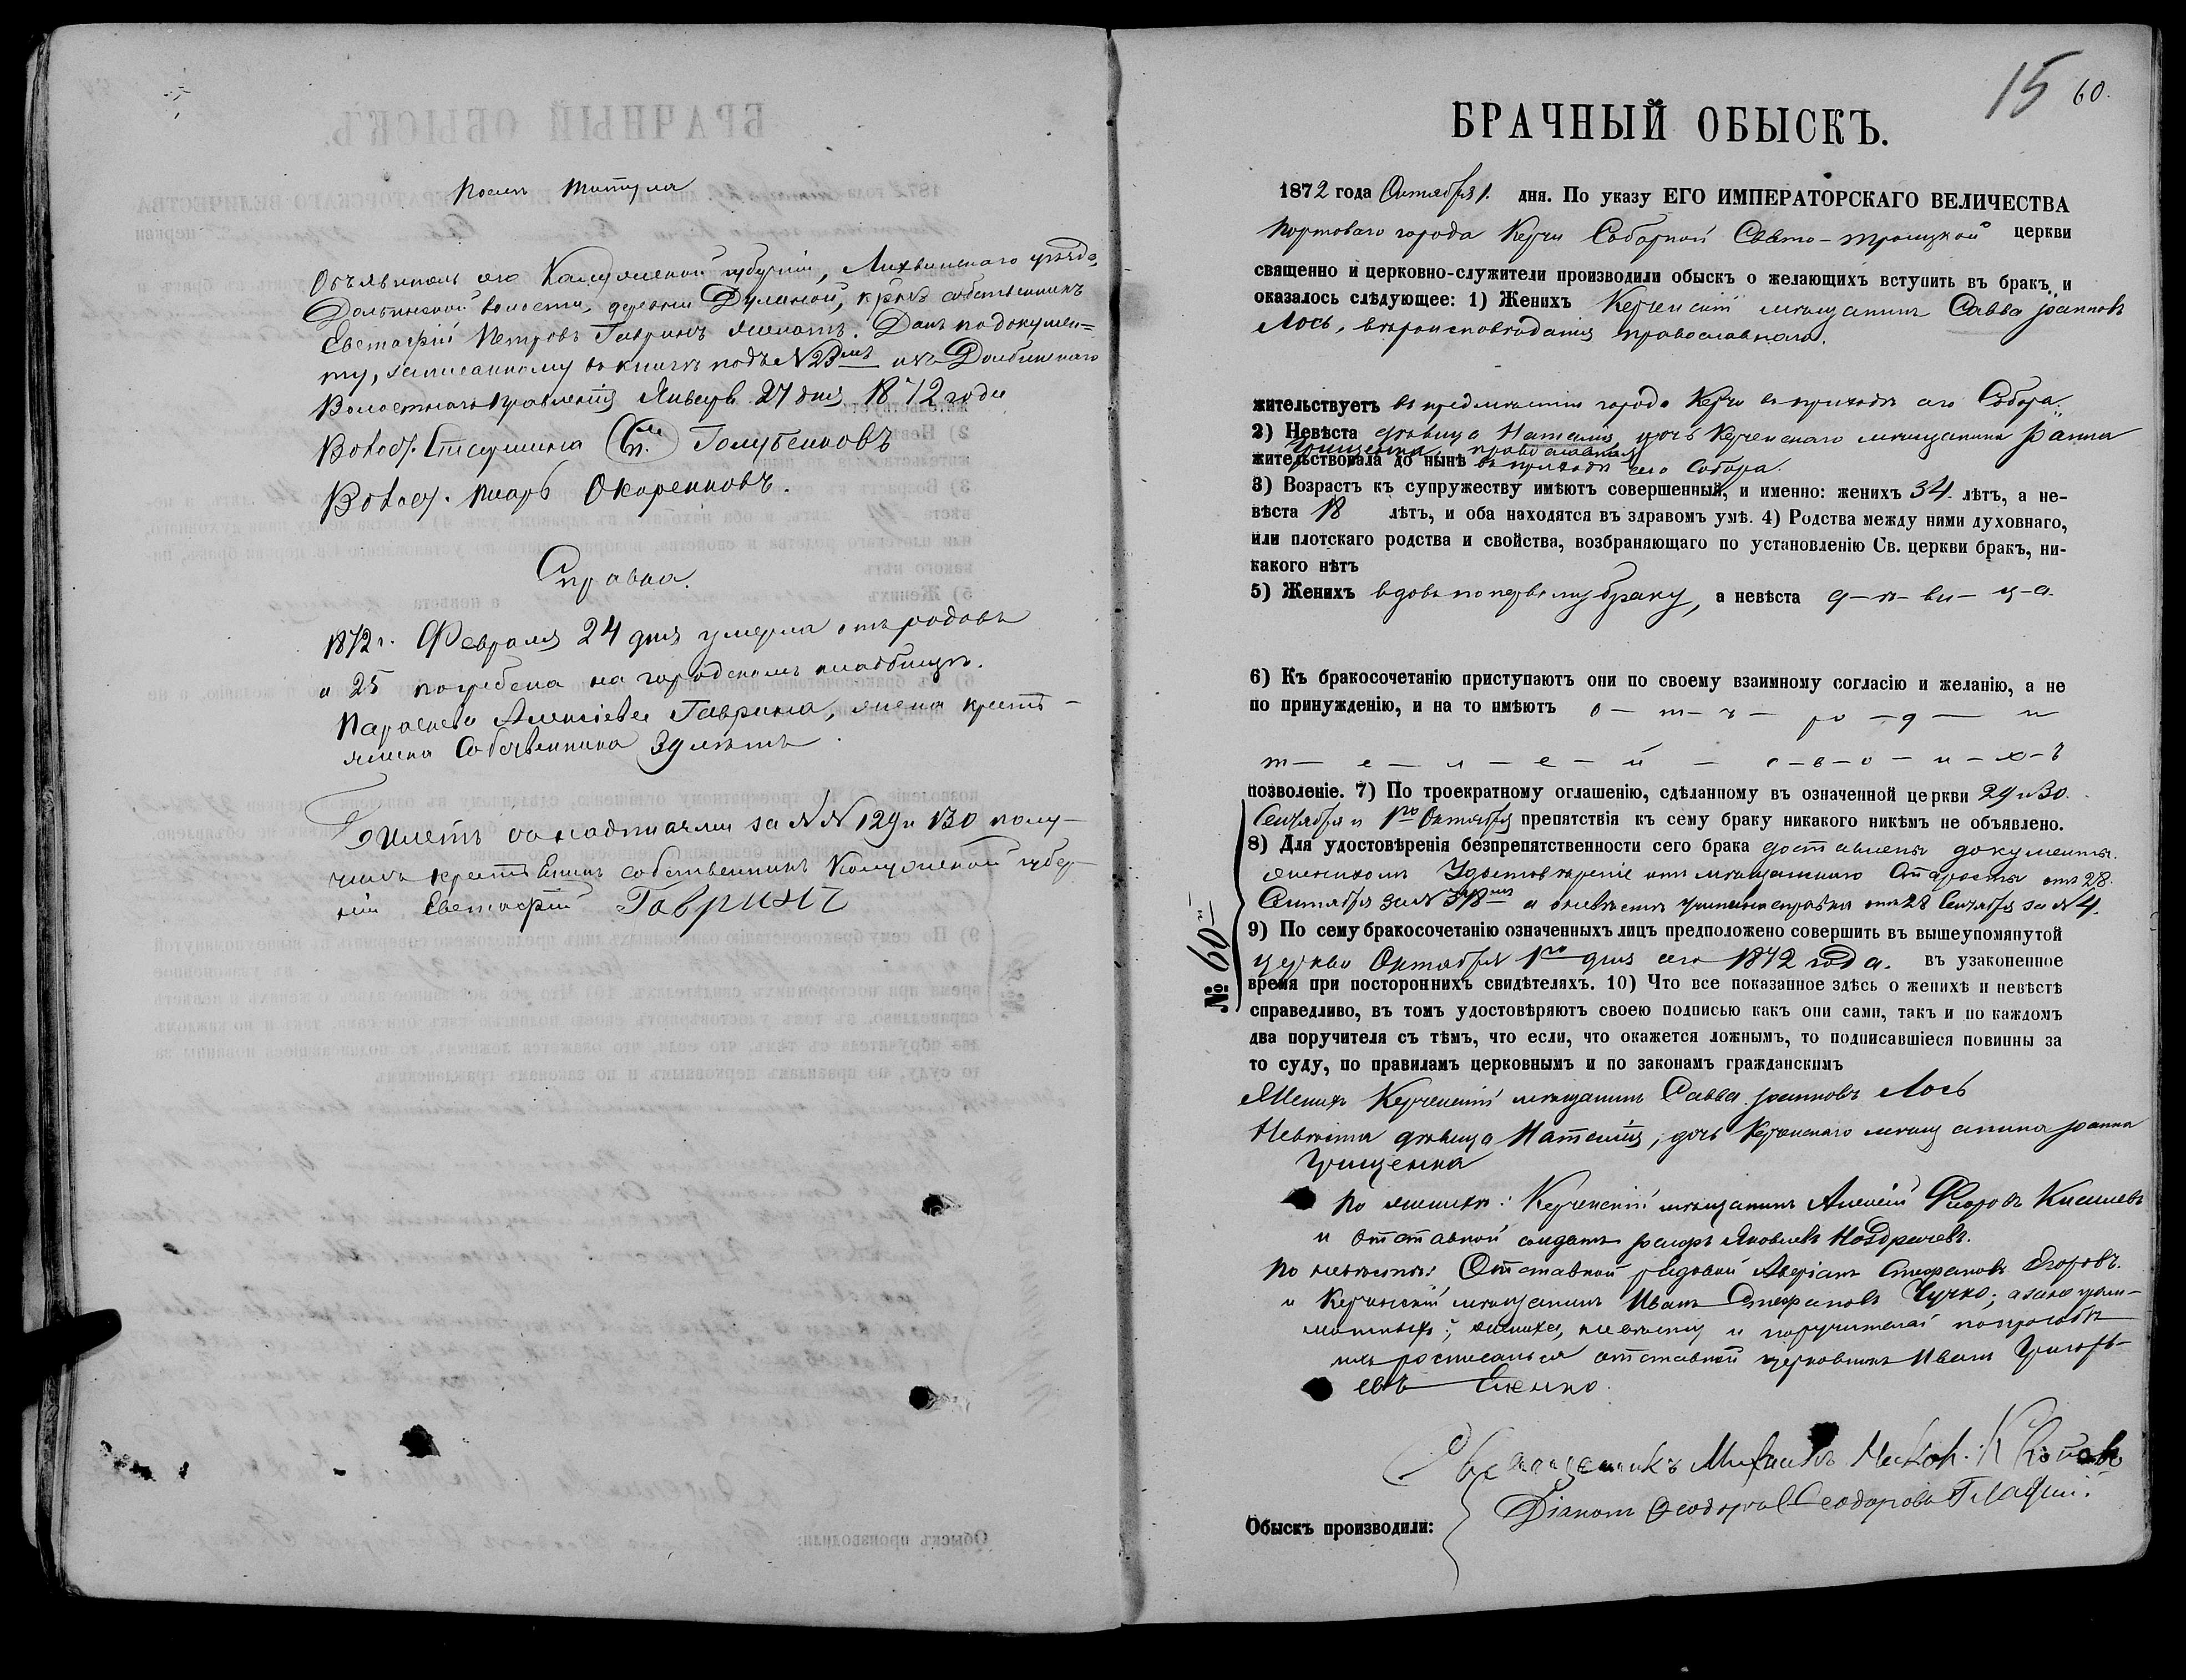 После титула
Объявитель сего Калужской губерніи, Лихвинскаго уѣзда,
Дольбинской волости, деревни Думиной, крес. собственникъ
Евстафій Петровъ Гавринъ женатъ. Данъ по докумен=
ту, записанному въ книгѣ подъ № 23мъ изъ Долбинскаго
Волостнаго Правленія Января 27 дня 1872 года
Волос. Старшина (М.П.) Голубенковъ
Волос. писарь Окоренковъ.
Справка.
1872 г. Февраля 24 дня умерла отъ родовъ
и 25 погребена на городскомъ кладбищѣ.
Параскева Алексіева Гаврина, жена крестъ-
янина Собственника 39 лѣтъ.
Билетъ съ надписями за №№ 129 и 130 полу-
чилъ крестьянинъ собственникъ Калужской губер-
ніи Евстафій Гавринъ
15 60.
БРАЧНЫЙ ОБЫСКЪ.
1872 года Октября 1. дня. По указу ЕГО ИМПЕРАТОРСКАГО ВЕЛИЧЕСТВА
Портоваго города Керчи Соборной Свято-Троицкой церкви
священно и церковно-служители производили обыскъ о желающихъ вступить въ бракъ, и
оказалось слѣдующее: 1) Женихъ Керченскій мѣщанинъ Савва Іоанновъ
Лось, вѣроисповѣданія православнаго.
жительствуетъ въ предмѣстіи города Керчи въ приходѣ сего Собора.
2) Невѣста дѣвица Наталія, дочь Керченскаго мѣщанина Іоанна
Грищенка, православная
жительствовала до нынѣ въ приходѣ сего Собора.
3) Возрастъ къ супружеству имѣютъ совершенный, и именно: женихъ 34. лѣтъ, а не-
вѣста 18 лѣтъ, и оба находятся въ здравомъ умѣ. 4) Родства между ними духовнаго,
или плотскаго родства и свойства, возбраняющаго по установленію Св. церкви бракъ, ни-
какого нѣтъ
5) Женихъ вдовъ по первому браку, а невѣста д-ѣ-ви-ц-а.
6) Къ бракосочетанію приступаютъ они по своему взаимному согласію и желанію, а не
по принужденію, и на то имѣютъ о-т-ъ-ро-д-и
т-е-л-е-й-с-в-о-и-х-ъ
позволеніе. 7) По троекратному оглашенію, сдѣланному въ означенной церкви 29 и 30.
Сентября и 1го Октября препятствія къ сему браку никакого никѣмъ не объявлено.
8) Для удостовѣренія безпрепятственности сего брака доставлены документы.
женихомъ Удостовѣреніе отъ мѣщанскаго Старосты отъ 28.
Сентября за № 378мъ а о невѣстѣ справка отъ 28 Сентября за № 4.
9) По сему бракосочетанію означенныхъ лицъ предположено совершить въ вышеупомянутой
церкви Октября 1го дня сего 1872 года. въ узаконенное
№ 60й
время при постороннихъ свидѣтеляхъ. 10) Что все показанное здѣсь о женихѣ и невѣстѣ
справедливо, въ томъ удостовѣряютъ своею подписью какъ они сами, такъ и по каждомъ
два поручителя съ тѣмъ, что если, что окажется ложнымъ, то подписавшіеся повинны за
то суду, по правиламъ церковнымъ и по законамъ гражданскимъ
Женихъ Керченскій мѣщанинъ Савва Іоанновъ Лось
Невѣста дѣвица Наталія, дочь Керченскаго мѣщанина Іоанна
Грищенка
По женихѣ: Керченскій мѣщанинъ Алексій Киселевъ
и отставной солдатъ Іосифъ Яковлевъ Ноздрачевъ.
По невѣстѣ: Отставной рядовой Аверіанъ Стефановъ Егоровъ.
и Керченскій мѣщанинъ Иванъ Стефановъ Чучко; а за негра-
мотныхъ: жениха, невѣсту и поручителей по просьбѣ
ихъ росписался отставной церковникъ Иванъ Григорь-
евъ
Священникъ Михаилъ
Діаконъ Ѳеодоръ Ѳеодоровъ Гладкій.
Обыскъ производили: